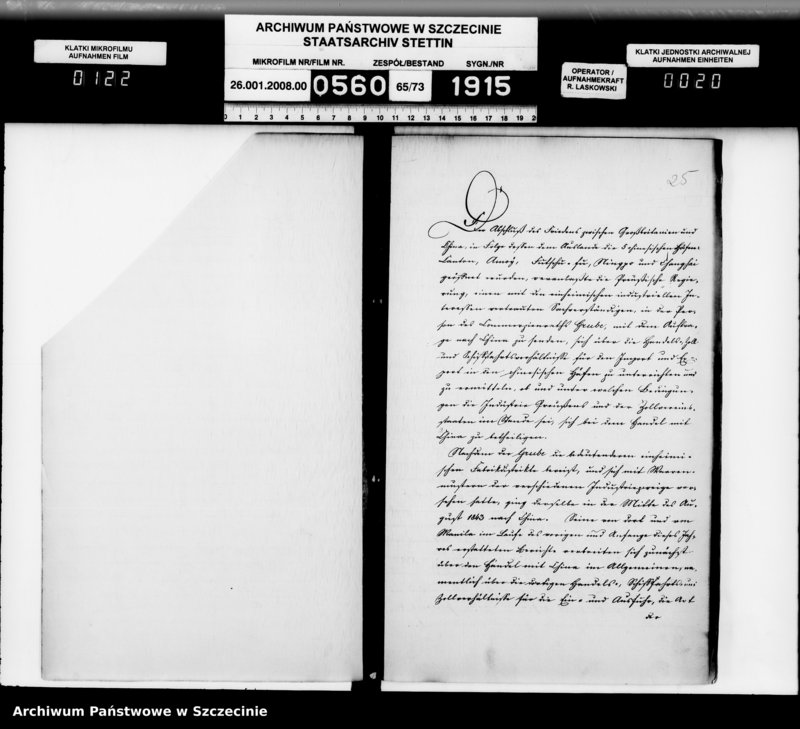 ARCHIWUM PAŃSTWOWE W SZCZECINIE
STAATSARCHIV STETTIN
KLATKI MIKROFILMU
AUFNAHMEN FILM
0122
MIKROFILM NR/FILM NR.
ZESPÓŁ/BESTAND
SYGN./NR
26.001.2008.00
0560
65/73
1915
OPERATOR /
AUFNAHMEKRAFT
R. LASKOWSKI
KLATKI JEDNOSTKI ARCHIWALNEJ
AUFNAHMEN EINHEITEN
0020
0 1 2 3 4 5 6 7 8 9 10 11 12 13 14 15 16 17 18 19 20
25
Der Abschluß des Friedens zwischen Großbritanien und
China, in Folge dessen dem Auslande die 5 chinesischen Häfen:
Canton, Amoy, Futschu-fu, Ningpo und Shanghai
geöffnet wurden, veranlaßte die Preußische Regie-
rung, einen mit den einheimischen industriellen In-
teressen vertrauten Sachverständigen, in der Per-
son des Commerzienraths Grube, mit dem Auftra-
ge nach China zu senden, sich über die Handels-, Zoll-
und Schifffahrtsverhältnisse für den Import und Ex-
port in den chinesischen Häfen zu unterrichten und
zu ermitteln, ob und unter welchen Bedingun-
gen die Industrie Preußens und der Zollvereins-
staaten im Stande sei, sich bei dem Handel mit
China zu betheiligen.
Nachdem der Grube die bedeutenderen einheimi-
schen Fabrikdistrikte bereist, und sich mit Waaren-
mustern der verschiedenen Industriezweige ver-
sehen hatte, ging derselbe in der Mitte des Au-
gust 1843 nach China. Seine von dort und von
Manila im Laufe des vorigen und Anfange dieses Jah-
res erstatteten Berichte verbreiten sich zunächst
über den Handel mit China im Allgemeinen, na-
mentlich über die dortigen Handels-, Schifffahrts- und
Zollverhältnisse für die Ein- und Ausfuhr, die Art
der
Archiwum Państwowe w Szczecinie